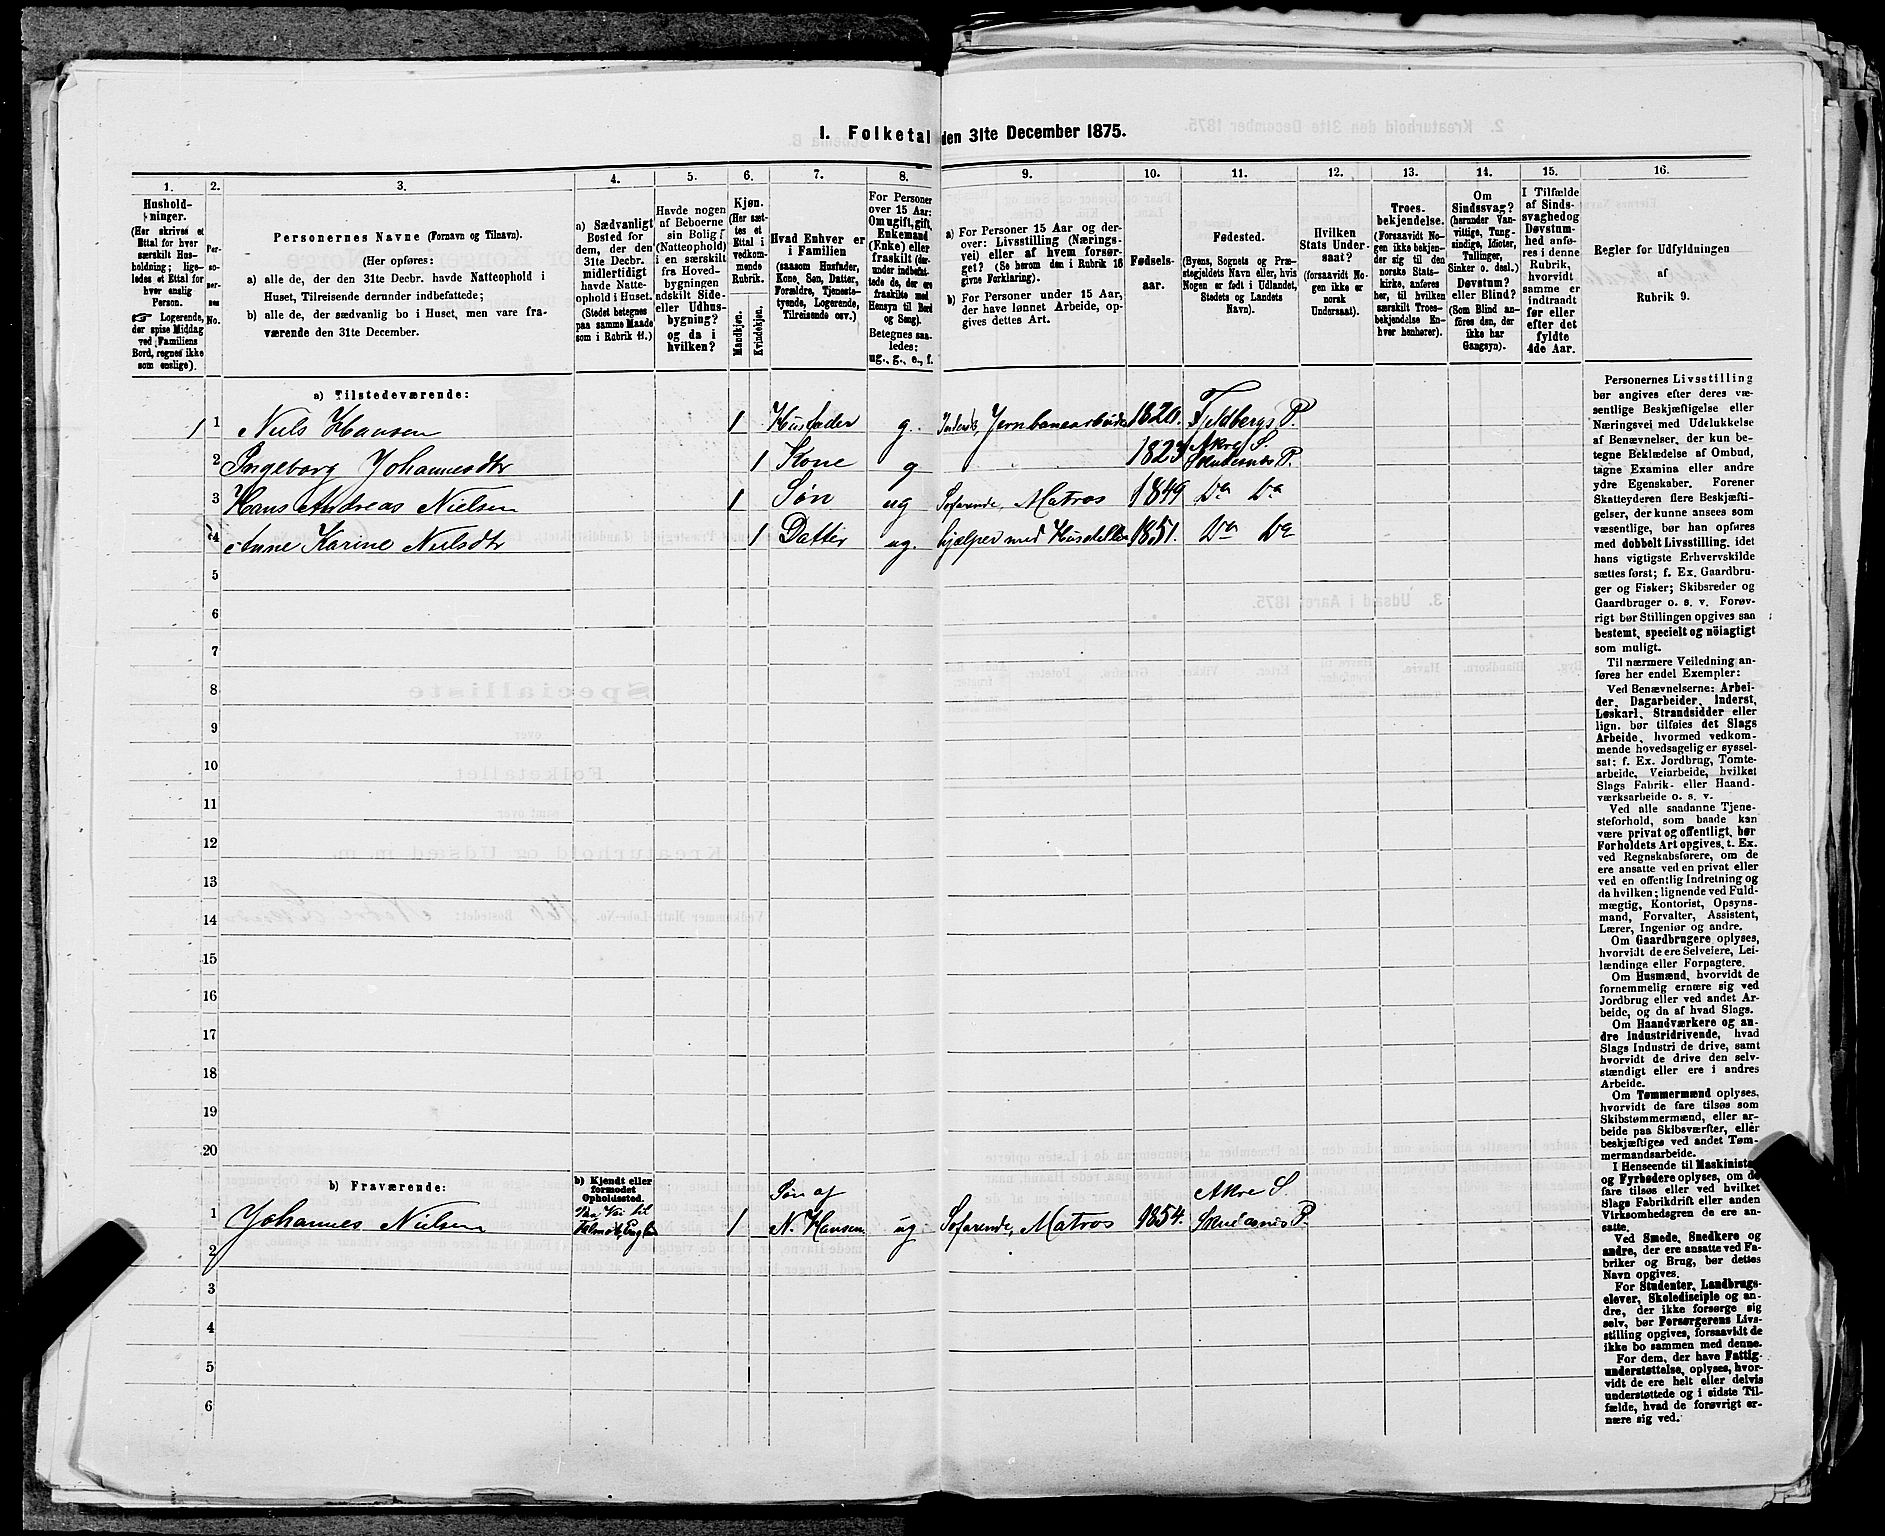 I. Folketal den 31te December 1875.
1. 2. 3. 4. 5. 6. 7. 8. 9. 10. 11. 12. 13. 14. 15. 16.
Hushold-
ninger.
(Her skrives et
Ettal for hver
særskilt Hus-
holdning; lige-
ledes et Ettal for
hver enslig
Person.
☞ Logerende,
der spise Middag
ved Familiens
Bord, regnes ikke
som enslige).
Per-
so-
ner-
nes
No.
Personernes Navne (Fornavn og Tilnavn).
(Her opføres:
a) alle de, der den 31te Decbr. havde Natteophold i
Huset, Tilreisende derunder indbefattede;
b) alle de, der sædvanlig bo i Huset, men vare fra-
værende den 31te December.
a) Sædvanligt
Bosted for
dem, der den
31te Decbr.
midlertidigt
havde Natte-
ophold i Huset.
(Stedet betegnes
paa samme Maade
som i Rubrik 11.)
Havde nogen
af Beboerne
sin Bolig
(Natteophold)
i en særskilt
fra Hoved-
bygningen
adskilt Side-
eller Udhus-
bygning?
og da i
hvilken?
Kjøn.
(Her sæt-
tes et
Ettal i
vedkom-
mende
Rubrik.
Mandkjøn.
Kvindekjøn.
Hvad Enhver er
i Familien
(saasom Husfader,
Kone, Søn, Datter,
Forældre, Tjeneste-
tyende, Logerende,
Tilreisende osv.)
For Personer
over 15 Aar:
Om ugift, gift,
Enkemand
(Enke) eller
fraskilt (der-
under indbefat-
tede de, der ere
fraskilte med
Hensyn til Bord
og Seng).
Betegnes saa-
ledes:
ug., g., e., f.
a) For Personer 15 Aar og der-
over: Livsstilling (Nærings-
vei) eller af hvem forsør-
get? (Se herom den i Rubrik 16
givne Forklaring).
b) For Personer under 15 Aar,
der have lønnet Arbeide, op-
gives dettes Art.
Fødsels-
aar.
Fødested.
(Byens, Sognets og Præ-
stegjeldets Navn eller, hvis
Nogen er født i Udlandet,
Stedets og Landets
Navn).
Hvilken
Stats Under-
saat?
(forsaavidt No-
gen ikke er
norsk
Undersaat).
Troes-
bekjendelse.
(Forsaavidt No-
gen ikke bekjen-
der sig til den
norske Stats-
kirke, anføres
her, til hvilken
særskilt Troes-
bekjendelse En-
hver henhører).
Om
Sindssvag?
(herunder Van-
vittige, Tung-
sindige, Idioter,
Tullinger,
Sinker o. desl.)
Døvstum?
eller Blind?
(Som Blind an-
føres den, der
ikke har
Gangsyn).
I Tilfælde
af Sinds-
svaghed og
Døvstum-
hed anfø-
res i denne
Rubrik,
hvorvidt
samme er
indtraadt
før eller
efter det
fyldte
4de Aar.
Regler for Udfyldningen
af
Rubrik 9.
a) Tilstedeværende:
1 1 Niels Hansen 1 Husfader g. Inderst, Jernbanearbeider 1820. Fjeldbergs P.
2 Ingeborg Johannesdtr 1 Kone g 1823 Akre S. Skudesnæs P.
3 Hans Andreas Nielsen 1 Søn ug Søfarende, Matros 1849 Do Do
4 Anne Karine Nielsdtr 1 Datter ug. hjælper med Husstellet 1851. Do Do
5
6
7
8
9
10
11
12
13
14
15
16
17
18
19
20
b) Fraværende:
b) Kjendt eller
formodet
Opholdssted.
1 Johannes Nielsen Paa Vei til Falmouth, England 1 Søn af N. Hansen ug. Søfarende, Matros 1854. Akre S. Skudesnæs P.
2
3
4
5
6
Personernes Livsstilling
bør angives efter deres væ-
sentlige Beskjæftigelse eller
Næringsvei med Udelukkelse
af Benævnelser, der kun be-
tegne Beklædelse af Ombud,
tagne Examina eller andre
ydre Egenskaber. Forener
Skatteyderen flere Beskjæfti-
gelser, der kunne ansees som
væsentlige, bør han opføres
med dobbelt Livsstilling, idet
hans vigtigste Erhvervskilde
sættes først; f. Ex. Gaardbru-
ger og Fisker; Skibsreder og
Gaardbruger o. s. v. Forøv-
rigt bør Stillingen opgives saa
bestemt, specielt og nöiagtigt
som muligt.
Til nærmere Veiledning an-
føres her endel Exempler:
Ved Benævnelserne: Arbei-
der, Dagarbeider, Inderst,
Løskarl, Strandsidder eller
lign. bør tilføies det Slags
Arbeide, hvormed vedkom-
mende hovedsagelig er syssel-
sat; f. Ex. Jordbrug, Tomte-
arbeide, Veiarbeide, hvilket
Slags Fabrik- eller Haand-
værksarbeide o. s. v.
Ved alle saadanne Tjene-
steforhold, som baade kan
være privat og offentligt, bør
Forholdets Art opgives, t. Ex.
ved Regnskabsførere, om de
ere ansatte ved en privat eller
ved en offentlig Indretning og
da hvilken; lignende ved Fuld-
mægtig, Kontorist, Opsyns-
mand, Forvalter, Assistent,
Lærer, Ingeniør og andre.
Om Gaardbrugere oplyses,
hvorvidt de ere Selveiere, Lei-
lændinge eller Forpagtere.
Om Husmænd, hvorvidt de
fornemmelig ernære sig ved
Jordbrug eller ved andet Ar-
beide, og da af hvad Slags.
Om Haandværkere og an-
dre Industridrivende, hvad
Slags Industri de drive, samt
hvorvidt de drive den selv-
stændigt eller ere i andres
Arbeide.
Om Tømmermænd oplyses,
hvorvidt de fare tilsøs som
Skibstømmermænd, eller ar-
beide paa Skibsværfter, eller
beskjæftiges ved andet Tøm-
mermandsarbeide.
I Henseende til Maskinister
og Fyrbødere oplyses, om de
fare tilsøs eller ved hvilket
Slags Fabrikdrift eller anden
Virksomhedsgren de ere an-
satte.
Ved Smede, Snedkere og
andre, der ere ansatte ved Fa-
briker og Brug, bør dettes
Navn opgives.
For Studenter, Landbrugs-
elever, Skoledisciple og an-
dre, der ikke forsørge sig
selv, bør Forsørgerens Livs-
stilling opgives, forsaavidt de
ikke bo sammen med denne.
For dem, der have Fattig-
understøttelse, oplyses, hvor-
vidt de ere helt eller delvis
understøttede og i sidste Til-
fælde, hvad de forøvrigt er-
nære sig ved.